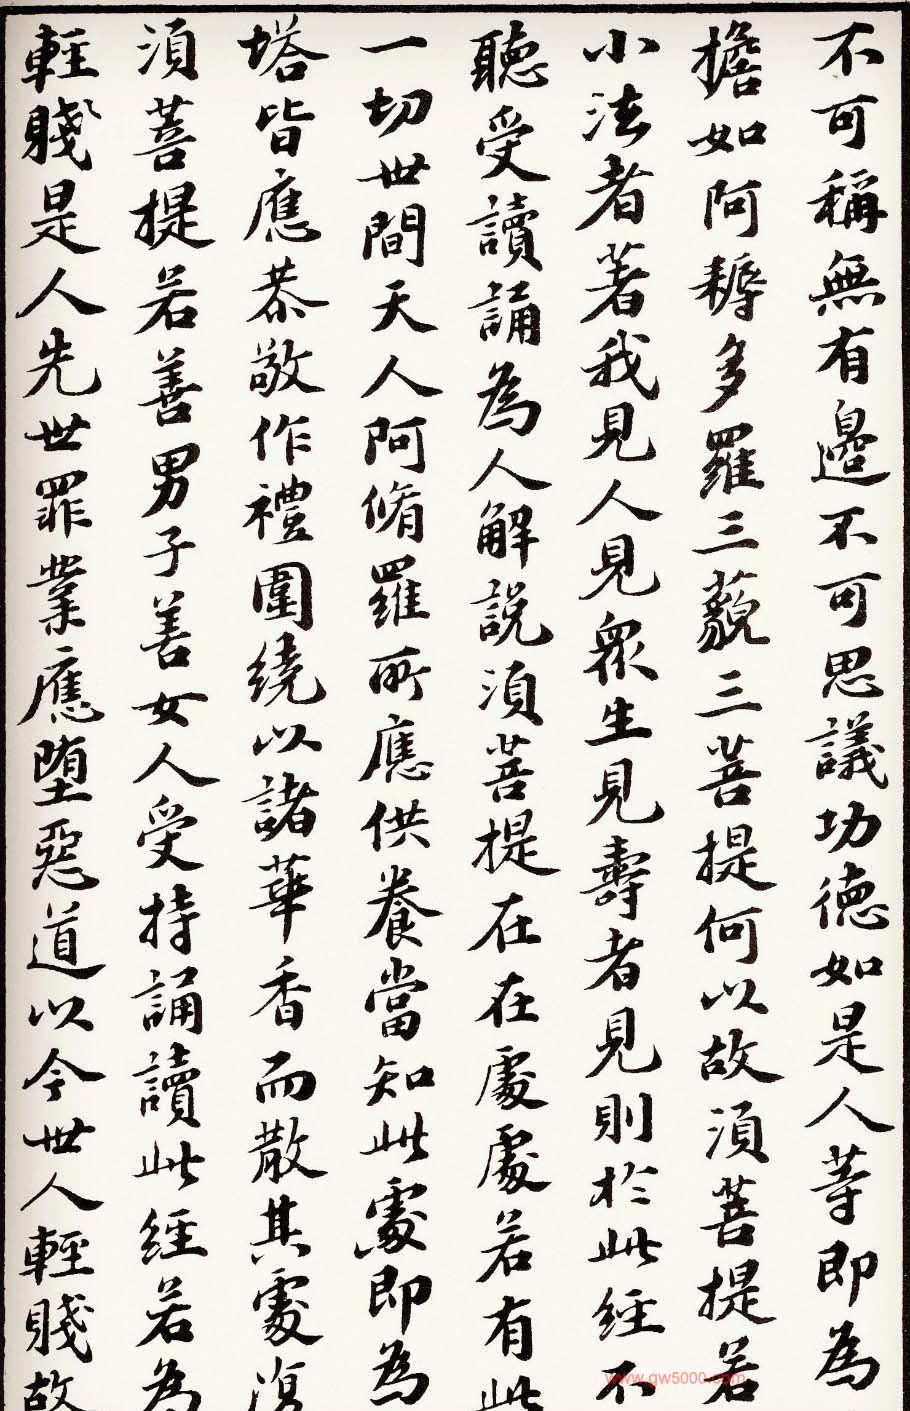 不可稱無有邊不可思議功德如是人等即為
擔如阿耨多羅三藐三菩提何以故須菩提若
小法者著我見人見眾生見壽者見則於此經不
聽受讀誦為人解說須菩提在在處處若有此
一切世間天人阿脩羅所應供養當知此處即為
塔皆應恭敬作禮圍繞以諸華香而散其處復
須菩提若善男子善女人受持誦讀此經若為
輕賤是人先世罪業應墮惡道以今世人輕賤故
www.gw5000.com